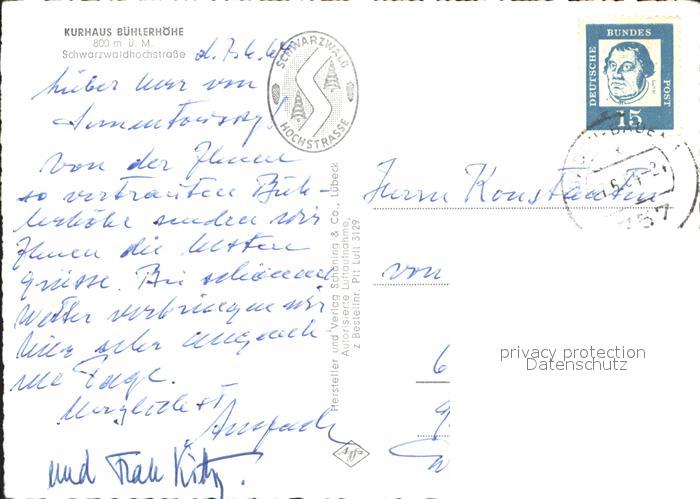 KURHAUS BÜHLERHÖHE
800 m ü. M.
Schwarzwaldhochstraße
d. 7.6.64
SCHWARZWALD
HOCHSTRASSE
Lieber Herr von
von der Ihnen
so vertrauten Büh-
lerhöhe senden wir
Ihnen die besten
Grüsse. Bei schönem
Wetter verbringen wir
hier sehr angeneh-
me Tage.
Herzlichst
und Frau
Hersteller und Verlag Schöning & Co., Lübeck
Autorisierte Luftaufnahme,
z Bestellnr. Plt Luft 3129
DEUTSCHE BUNDES POST
15
757
Herrn Konstantin
von
privacy protection
Datenschutz